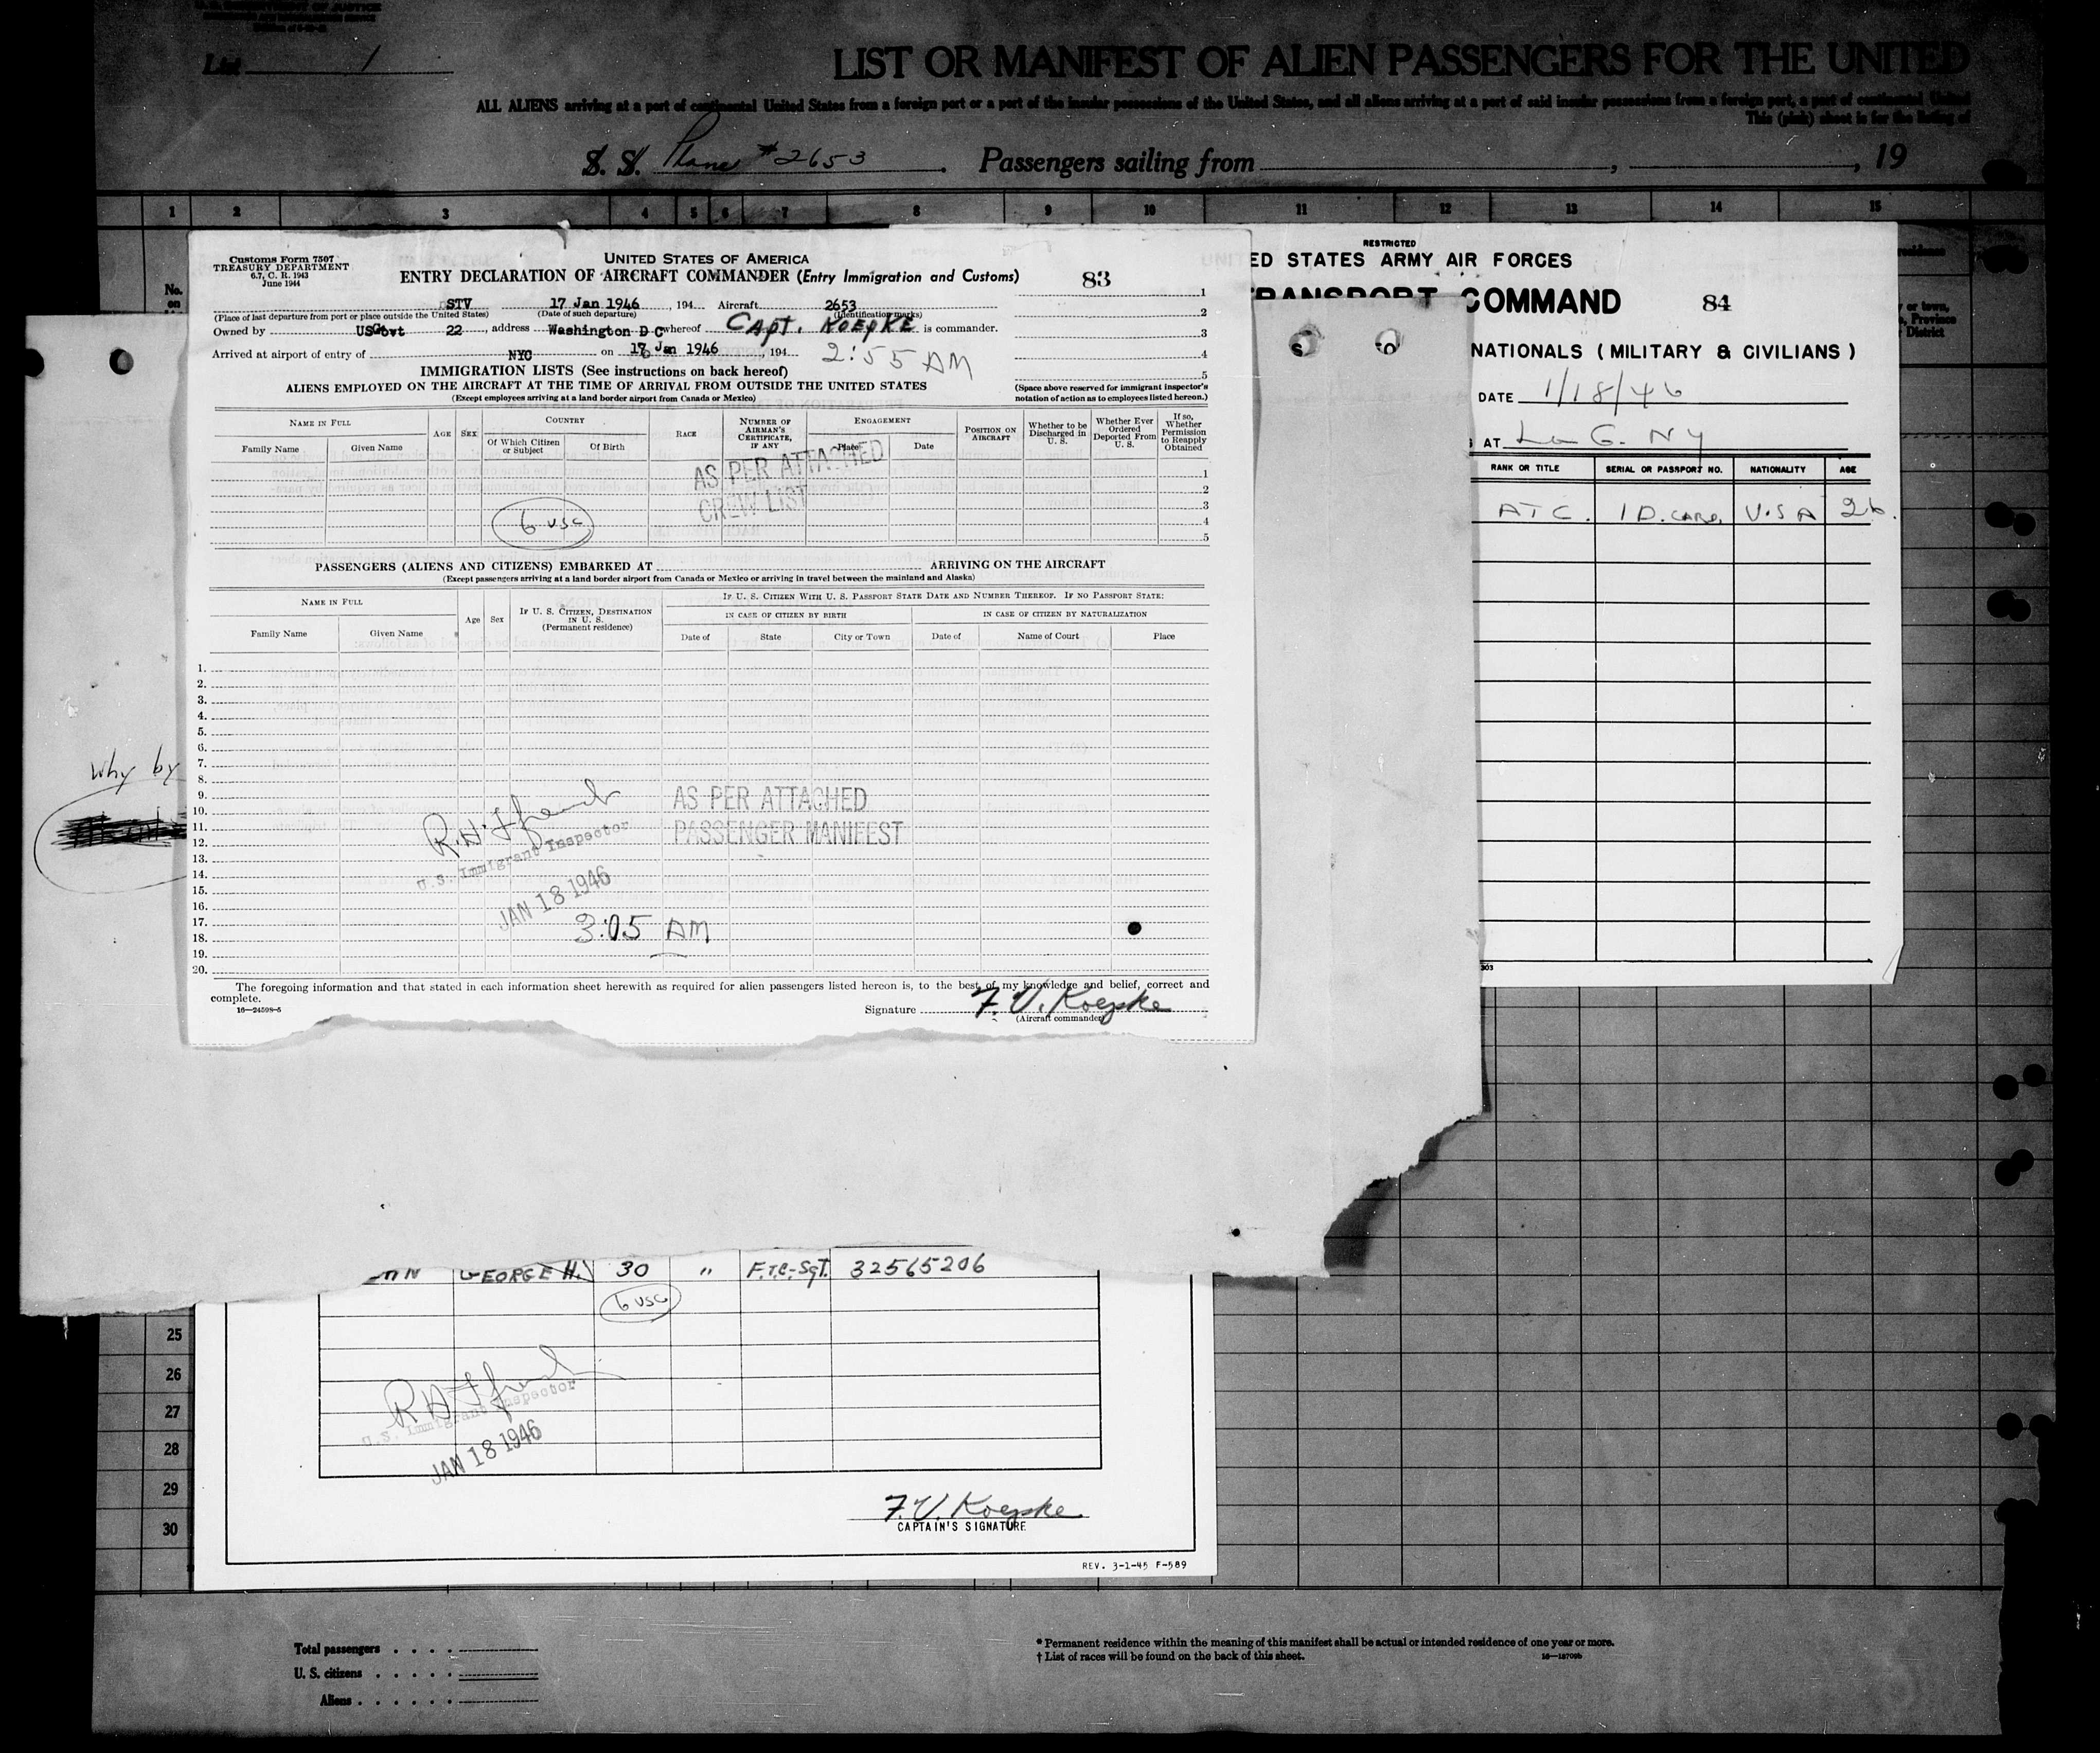 U. S. DEPARTMENT OF JUSTICE
List 1
LIST OR MANIFEST OF ALIEN PASSENGERS FOR THE UNITED
ALL ALIENS arriving at a port of continental United States from a foreign port or a port of the insular possessions of the United States, and all aliens arriving at a port of said insular possessions from a foreign port, a port of continental United
This (pink) sheet is for the listing of
S. S. Plane #2653 . Passengers sailing from , , 19
1 2 3 4 5 6 7 8 9 10 11 12 13 14 15
No.
on
Customs Form 7507
TREASURY DEPARTMENT
6.7, C. R. 1943
June 1944
UNITED STATES OF AMERICA
ENTRY DECLARATION OF AIRCRAFT COMMANDER (Entry Immigration and Customs)
83
STV 17 Jan 1946 , 194 Aircraft 2653
(Place of last departure from port or place outside the United States) (Date of such departure) (Identification marks)
Owned by USGovt 22 , address Washington D C whereof CAPT. KOEPKE is commander.
Arrived at airport of entry of NYC on 18 Jan 1946 , 194 2:55 AM
1
2
3
4
5
IMMIGRATION LISTS (See instructions on back hereof)
ALIENS EMPLOYED ON THE AIRCRAFT AT THE TIME OF ARRIVAL FROM OUTSIDE THE UNITED STATES
(Except employees arriving at a land border airport from Canada or Mexico)
(Space above reserved for immigrant inspector's
notation of action as to employees listed hereon.)
NAME IN FULL
Family Name Given Name
AGE SEX
COUNTRY
Of Which Citizen
or Subject
Of Birth
RACE
NUMBER OF
AIRMAN'S
CERTIFICATE,
IF ANY
ENGAGEMENT
Place Date
POSITION ON
AIRCRAFT
Whether to be
Discharged in
U. S.
Whether Ever
Ordered
Deported From
U. S.
If so,
Whether
Permission
to Reapply
Obtained
AS PER ATTACHED
CREW LIST
6 USC
1
2
3
4
5
PASSENGERS (ALIENS AND CITIZENS) EMBARKED AT ARRIVING ON THE AIRCRAFT
(Except passengers arriving at a land border airport from Canada or Mexico or arriving in travel between the mainland and Alaska)
NAME IN FULL
Family Name Given Name
Age Sex
IF U. S. CITIZEN, DESTINATION
IN U. S.
(Permanent residence)
IF U. S. CITIZEN WITH U. S. PASSPORT STATE DATE AND NUMBER THEREOF. IF NO PASSPORT STATE:
IN CASE OF CITIZEN BY BIRTH IN CASE OF CITIZEN BY NATURALIZATION
Date of State City or Town Date of Name of Court Place
1.
2.
3.
4.
5.
6.
7.
8.
9.
10.
11.
12.
13.
14.
15.
16.
17.
18.
19.
20.
AS PER ATTACHED
PASSENGER MANIFEST
U.S. Immigrant Inspector
JAN 18 1946
3:05 AM
The foregoing information and that stated in each information sheet herewith as required for alien passengers listed hereon is, to the best of my knowledge and belief, correct and
complete.
16—24598-5
Signature F. V. Koepke
(Aircraft commander)
why by
RESTRICTED
UNITED STATES ARMY AIR FORCES
TRANSPORT COMMAND 84
NATIONALS (MILITARY & CIVILIANS)
DATE 1/18/46
AT La G. NY
RANK OR TITLE SERIAL OR PASSPORT NO. NATIONALITY AGE
ATC. I D. CARD. U.S A 26.
303
or town,
Province
District
GEORGE H. 30 " F.T.C-SgT. 32565206
6 USC
U.S. Immigrant Inspector
JAN 18 1946
F. V. Koepke
CAPTAIN'S SIGNATURE
REV. 3-1-45 F-589
25
26
27
28
29
30
Total passengers . . . .
U. S. citizens . . . . .
Aliens . . . . . .
* Permanent residence within the meaning of this manifest shall be actual or intended residence of one year or more.
† List of races will be found on the back of this sheet.